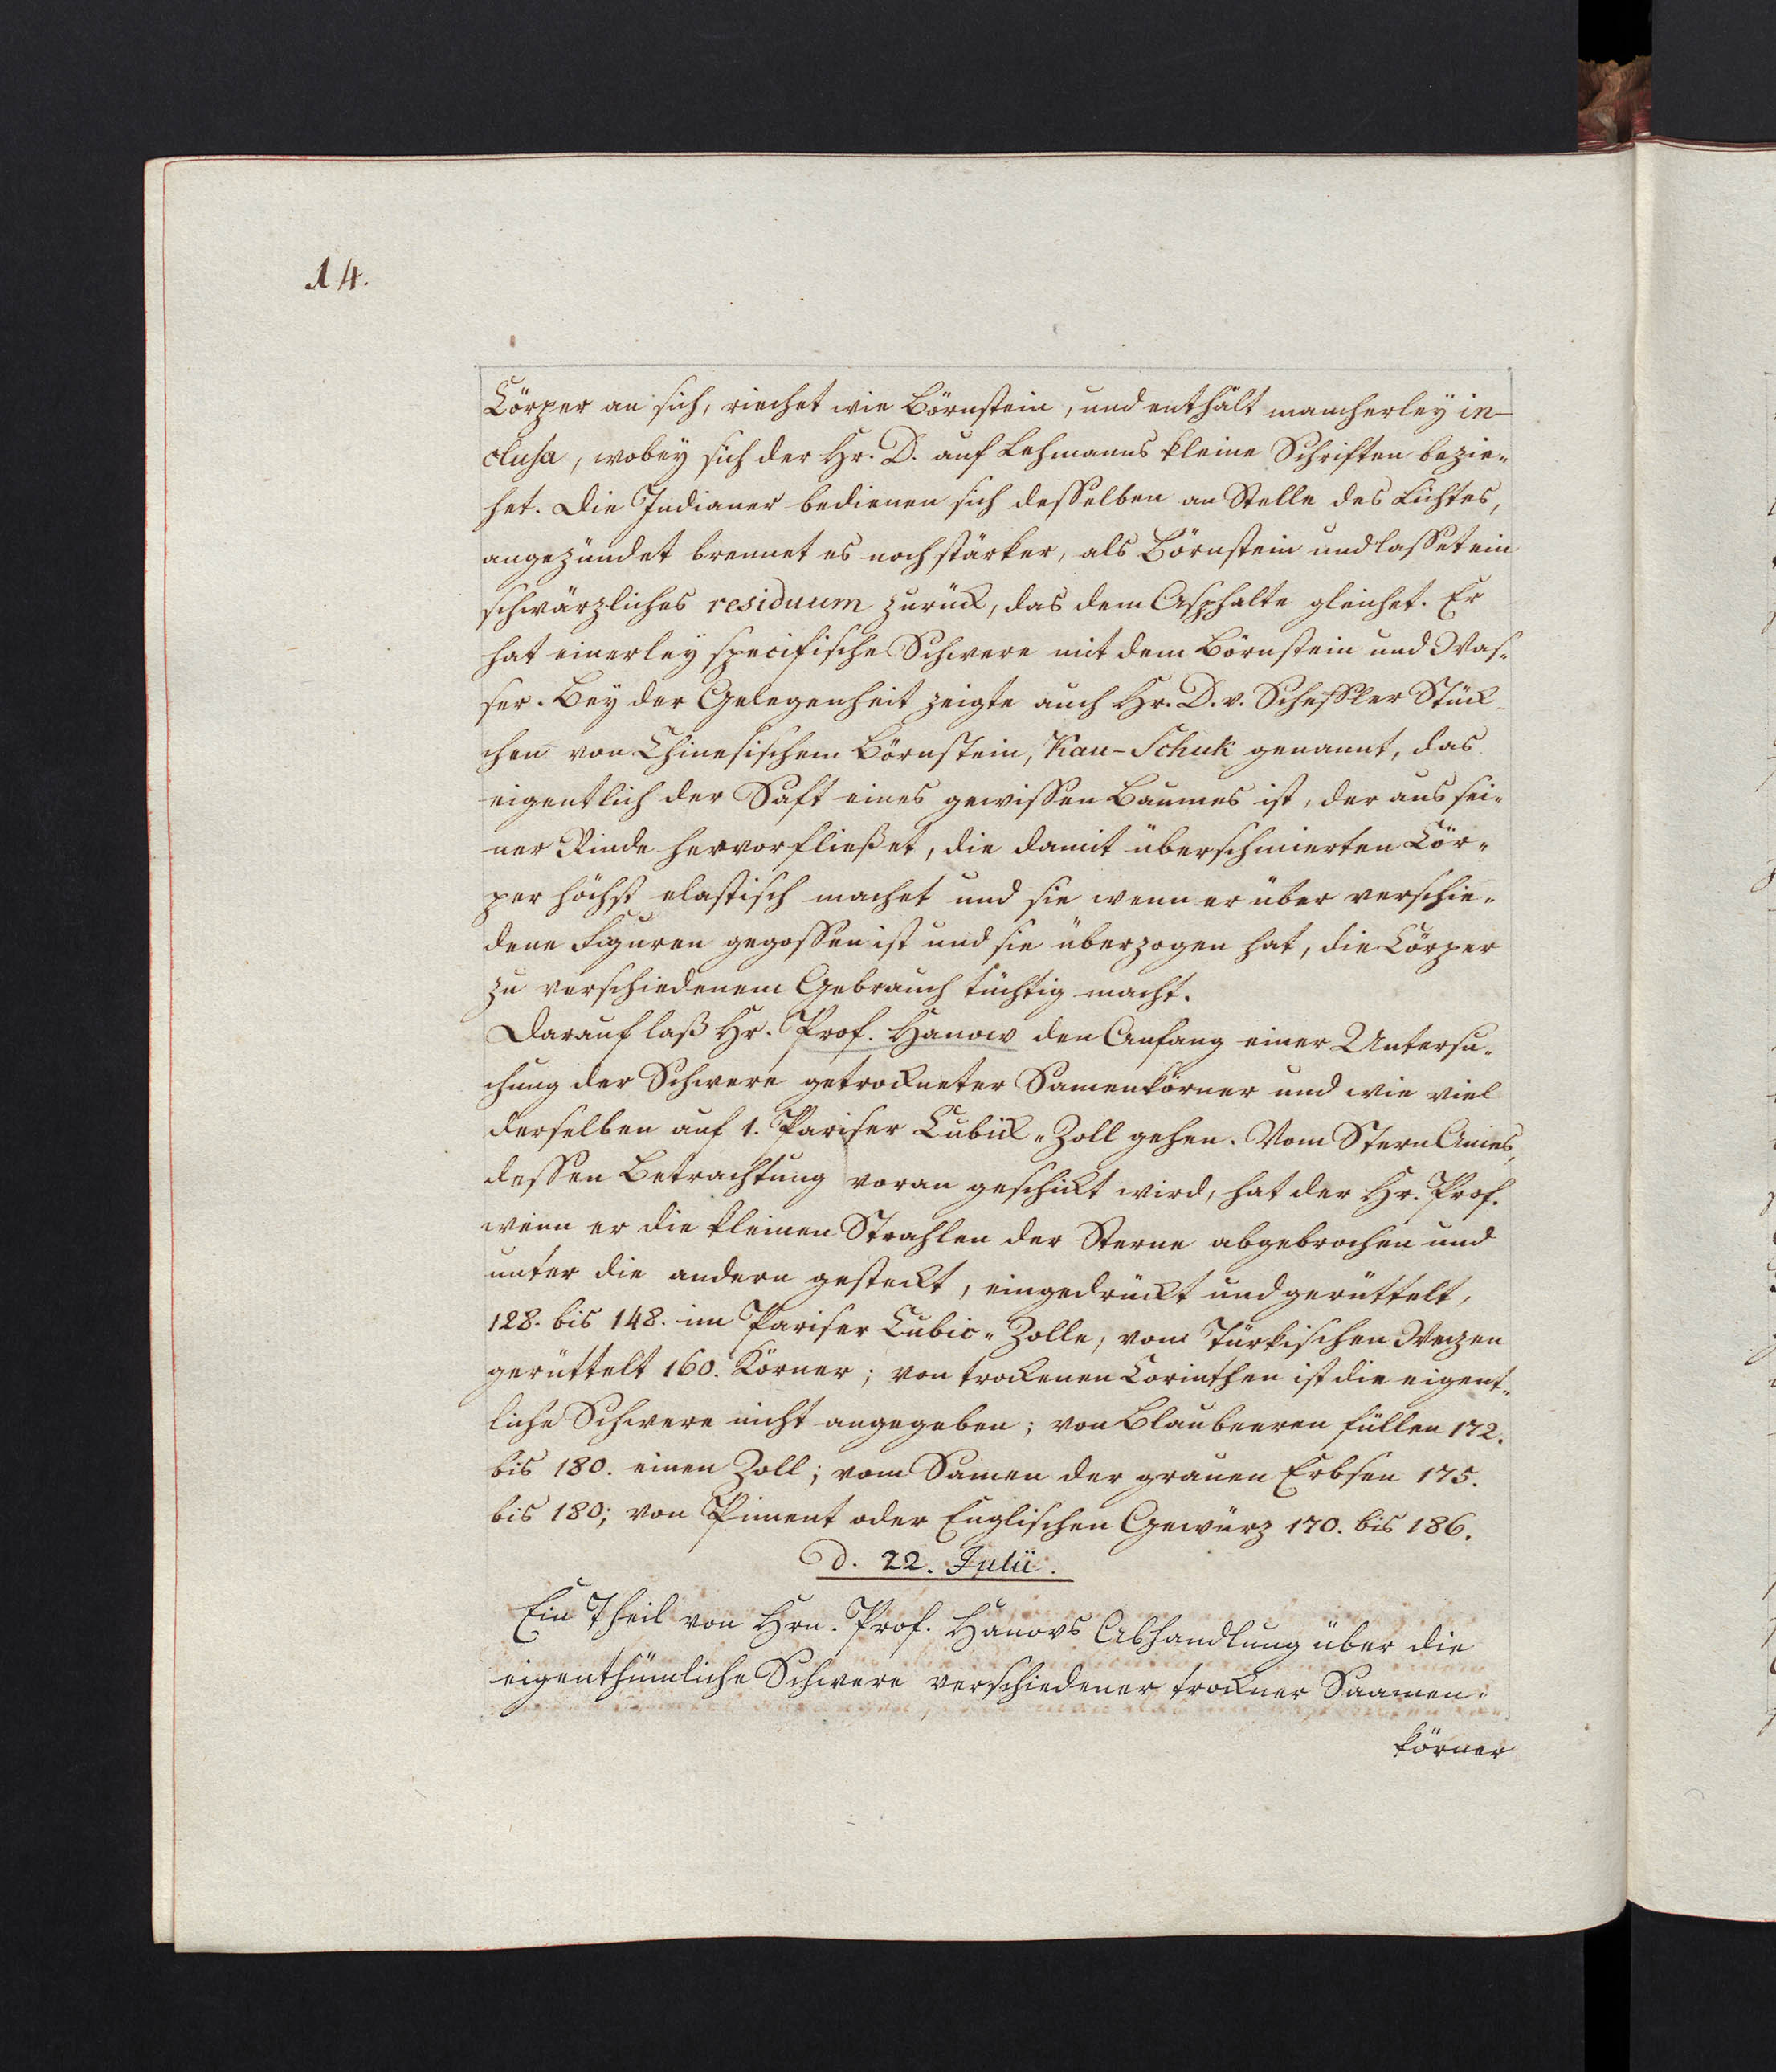 14.
Cörper an sich, riechet wie Börnstein, und enthält mancherley in-
clusa, wobey sich der Hr. D. auf Lehmanns kleine Schriften bezie-
het. Die Indianer bedienen sich desselben an Stelle des Lichtes,
angezündet brennet es noch stärker, als Börnstein und lasset ein
schwärzliches residuum zurück, das dem Asphalte gleichet. Er
hat einerley specifische Schwere mit dem Börnstein und Was-
ser. Bey der Gelegenheit zeigte auch Hr. D. v. Scheffler Stück-
chen von Chinesischem Börnstein, Kau-Schuk genannt, das
eigentlich der Saft eines gewissen Baumes ist, der aus sei-
ner Rinde hervorfließet, die damit überschmierten Cör-
per höchst elastisch machet und sie wenn er über verschie-
dene Figuren gegossen ist und sie überzogen hat, die Cörper
zu verschiedenem Gebrauch tüchtig macht.
Darauf laß Hr. Prof. Hanow den Anfang einer Untersu-
chung der Schwere getrockneter Samenkörner und wie viel
derselben auf 1. Pariser Cubick-Zoll gehen. Vom Stern Anies,
dessen Betrachtung voran geschickt wird, hat der Hr. Prof.
wenn er die kleinen Strahlen der Sterne abgebrochen und
unter die andern gesteckt, eingedrückt und gerüttelt,
128. bis 148. im Pariser Cubic-Zolle, vom Türkischen Weizen
gerüttelt 160. Körner; von trockenen Corinthen ist die eigent-
liche Schwere nicht angegeben; von Blaubeeren füllen 172.
bis 180. einen Zoll; vom Samen der grauen Erbsen 175.
bis 180; von Piment oder Englischen Gewürz 170. bis 186.
d. 22. Julii.
Ein Theil von Hrn. Prof. Hanovs Abhandlung über die
eigenthümliche Schwere verschiedener trockner Saamen-
körner